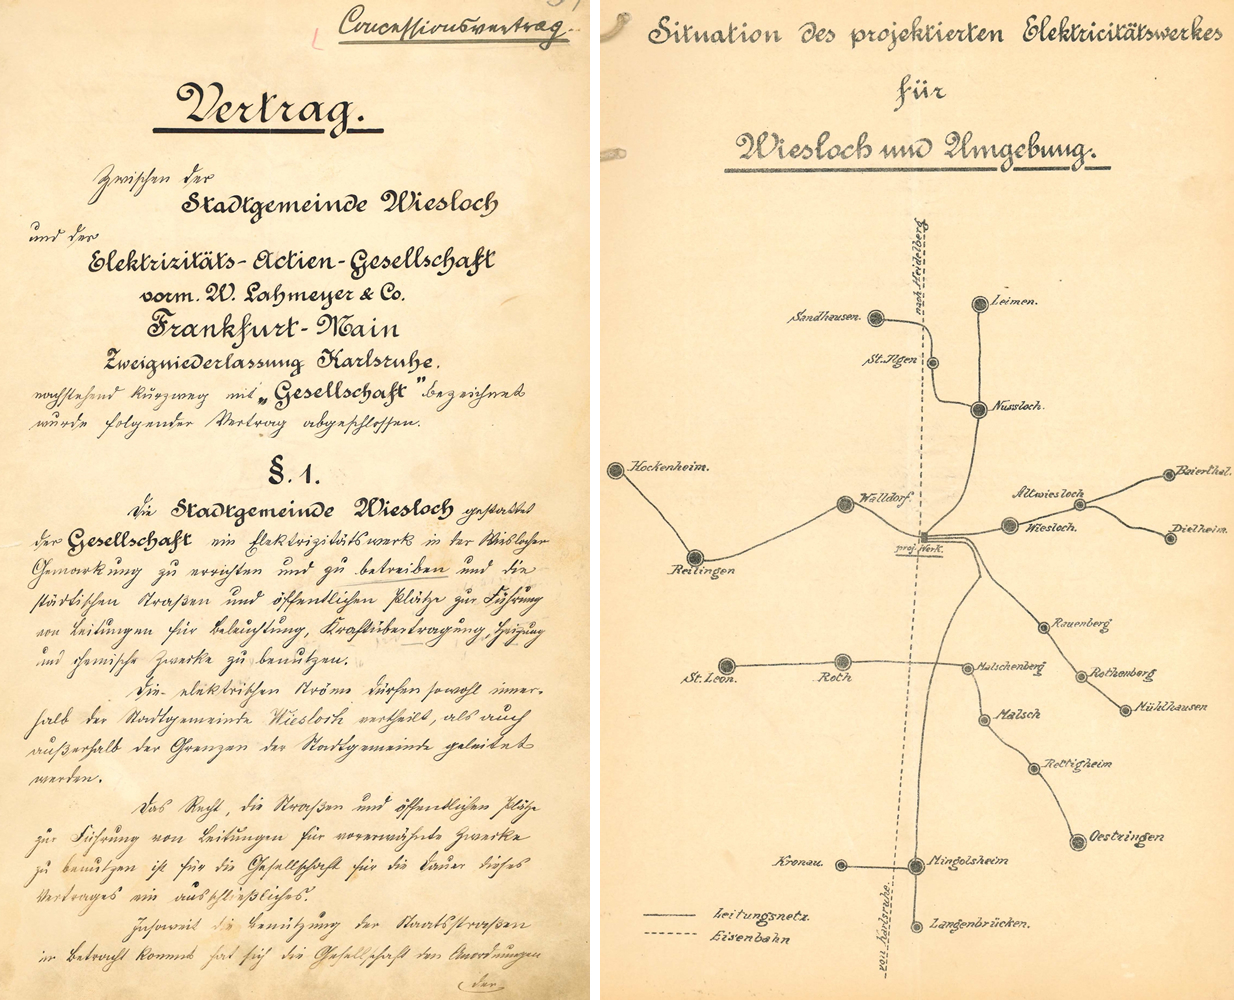 Concessionsvertrag.
Vertrag.
Zwischen der
Stadtgemeinde Wiesloch
und der
Elektrizitäts-Actien-Gesellschaft
vorm. W. Lahmeyer & Co.
Frankfurt-Main
Zweigniederlassung Karlsruhe.
nachstehend kurzweg mit „Gesellschaft" bezeichnet
wurde folgender Vertrag abgeschlossen.
§. 1.
Die Stadtgemeinde Wiesloch gestattet
der Gesellschaft ein Elektrizitätswerk in der Wieslocher
Gemarkung zu errichten und zu betreiben und die
städtischen Straßen und öffentlichen Plätze zur Führung
von Leitungen für Beleuchtung, Kraftübertragung, Heizung
und chemische Zwecke zu benutzen.
Die elektrischen Ströme dürfen sowohl inner-
halb der Stadtgemeinde Wiesloch vertheilt, als auch
außerhalb der Grenzen der Stadtgemeinde geleitet
werden.
Das Recht, die Straßen und öffentlichen Plätze
zur Führung von Leitungen für vorerwähnte Zwecke
zu benutzen ist für die Gesellschaft für die Dauer dieses
Vertrages ein ausschließliches.
Insoweit die Benützung der Staatsstraßen
in Betracht kommt hat sich die Gesellschaft den Anordnungen
der
Situation des projektierten Elektricitätswerkes
für
Wiesloch und Umgebung.
nach Heidelberg
Sandhausen.
Leimen.
St. Ilgen
Nussloch.
Hockenheim.
Walldorf.
Altwiesloch
Baierthal.
Wiesloch.
Dielheim.
proj. Werk.
Reilingen
Rauenberg
St. Leon.
Roth
Malschenberg
Rothenberg
Malsch
Mühlhausen
Rettigheim
Oestringen
Kronau.
Mingolsheim
Langenbrücken.
von Karlsruhe
Leitungsnetz.
Eisenbahn